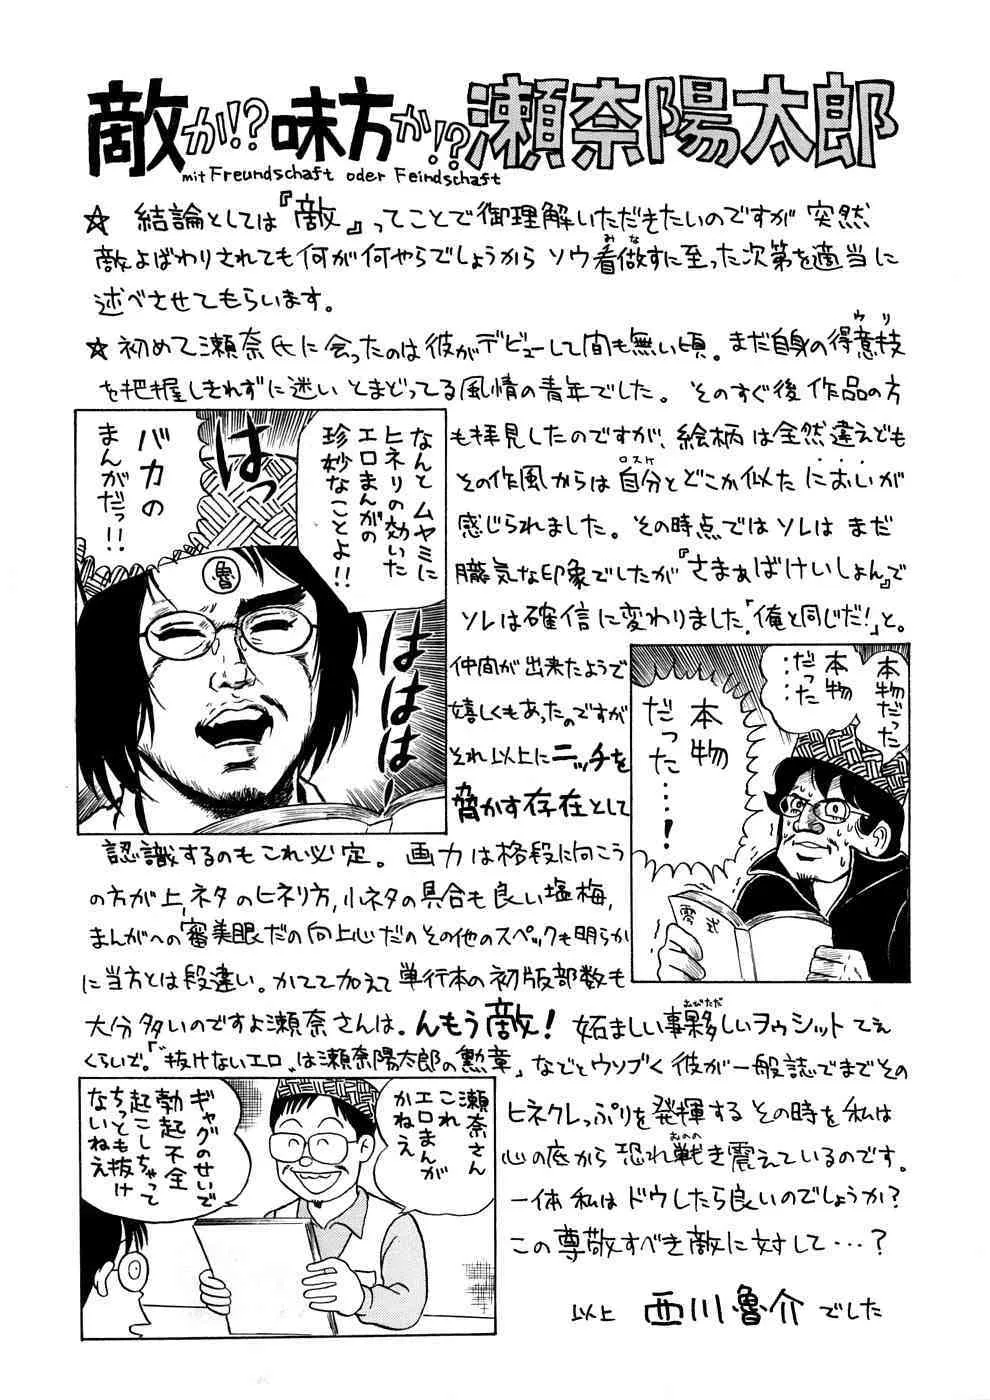 敵か!?味方か!?瀬奈陽太郎
mit Freundschaft oder Feindschaft
☆ 結論としては『敵』ってことで御理解いただきたいのですが 突然
敵よばわりされても何が何やらでしょうから ソウ看做すに至った次第を適当に
みな
述べさせてもらいます。
☆初めて瀬奈氏に会ったのは彼がデビューして間も無い頃。まだ自身の得意技
ウリ
を把握しきれずに迷い とまどってる風情の青年でした。そのすぐ後 作品の方
も拝見したのですが、絵柄は全然違えども
その作風からは自分とどこか似たにおいが
ロスケ
感じられました。その時点ではソレはまだ
朧気な印象でしたが『さまぁばけいしょん』で
ソレは確信に変わりました「俺と同じだ!」と。
なんと ムヤミに
ヒネリの効いた
エロまんがの
珍妙なことよ!!
はっ
はははは
バカの
まんがだっ!!
魯
仲間が出来たようで
嬉しくもあったのですが
それ以上にニッチを
脅かす存在として
本物だった
本物
だった……
本物
だった……!
零式
認識するのもこれ必定。画力は格段に向こう
の方が上、ネタのヒネリ方、小ネタの具合も良い塩梅、
まんがへの審美眼だの向上心だのその他のスペックも明らか
に当方とは段違い。かてて加えて単行本の初版部数も
大分多いのですよ瀬奈さんは。んもう敵! 妬ましい事夥しいヲゥシット てぇ
おびただ
くらいで。「“抜けないエロ”は瀬奈陽太郎の勲章」などとウソブく彼が一般誌でまでその
ヒネクレっぷりを発揮するその時を私は
心の底から恐れ戦き震えているのです。
おのの
一体私はドウしたら良いのでしょうか?
この尊敬すべき敵に対して…?
瀬奈さん
これ
エロまんが
かねえ
ギャグのせいで
勃起不全
起こしちゃって
ちっとも抜け
ないねえ
以上 西川魯介でした